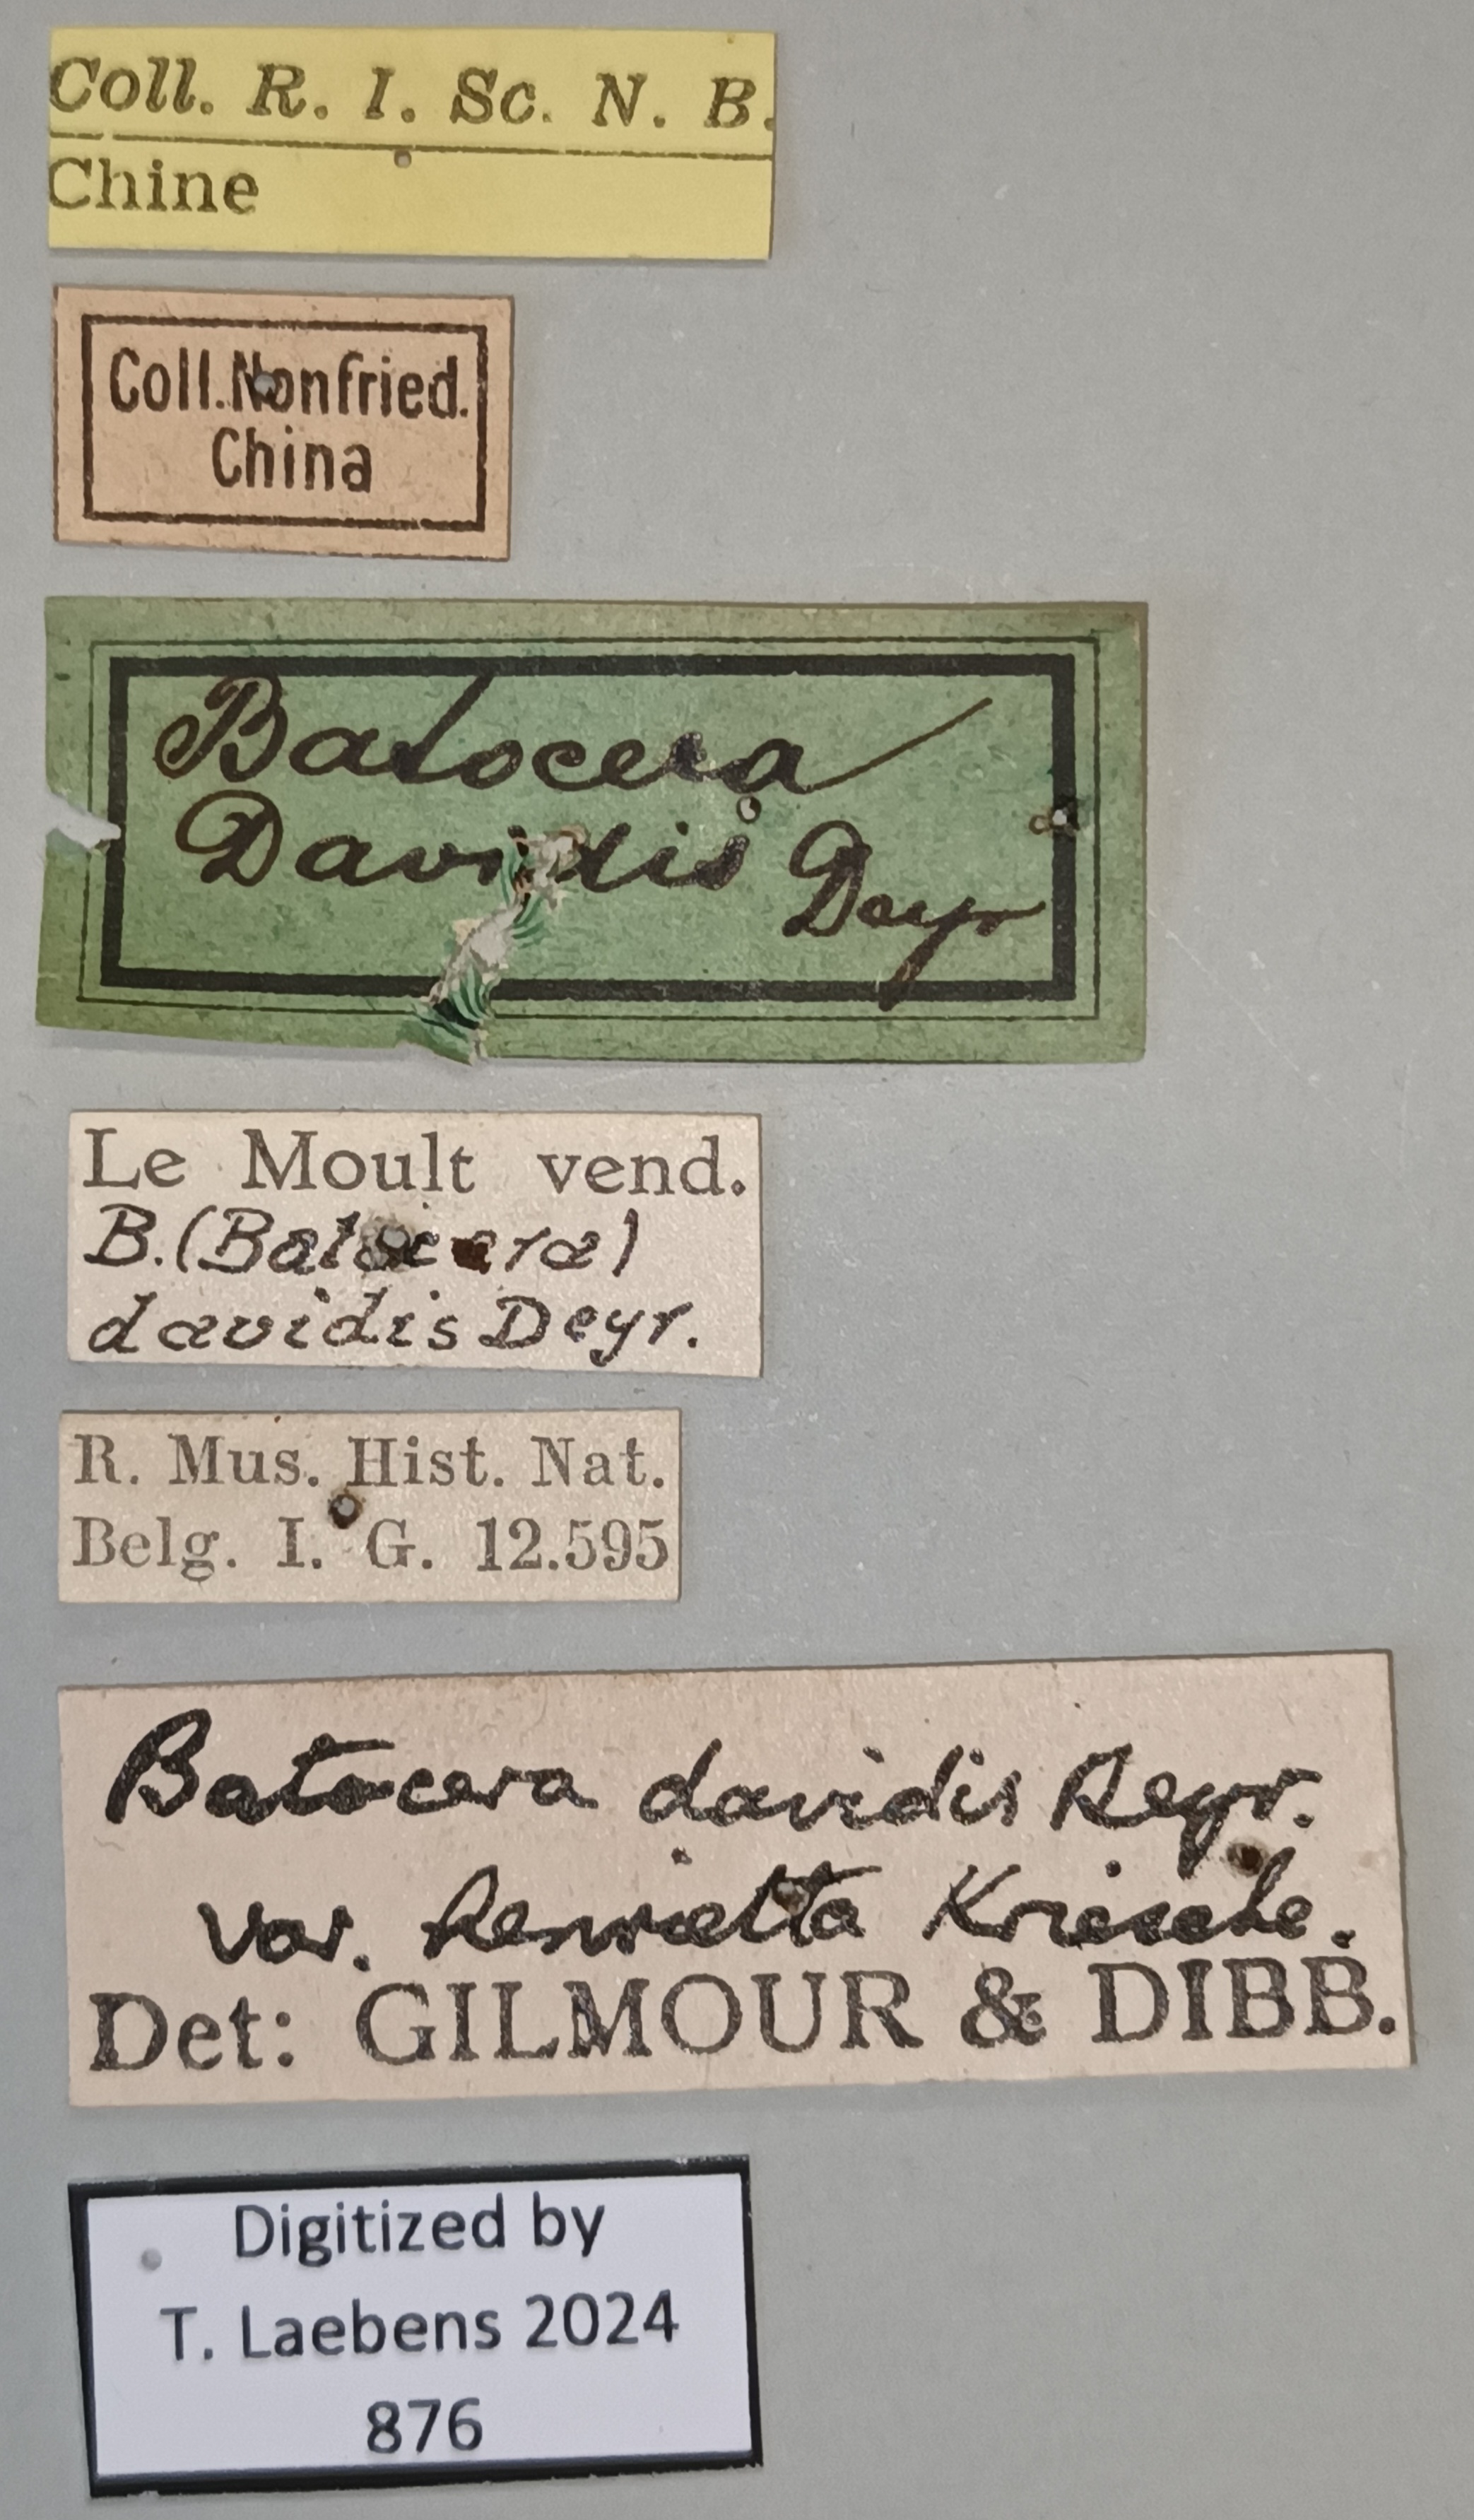 Coll. R. I. Sc. N. B.
Chine
Coll. Nonfried.
China
Batocera
Davidis Deyr
Le Moult vend.
B. (Batocera)
davidis Deyr.
R. Mus. Hist. Nat.
Belg. I. G. 12.595
Batocera davidis Deyr.
var. henrietta Kriesche.
Det: GILMOUR & DIBB.
Digitized by
T. Laebens 2024
876